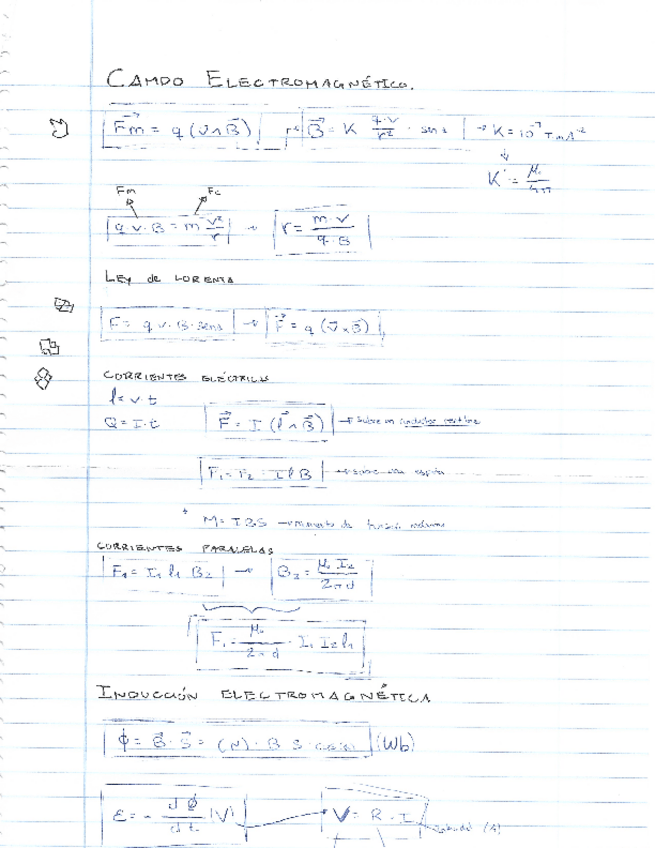 CAMPO ELECTROMAGNÉTICO.
Fm = q (v∧B) B = K q·v/r² · sen → K = 10⁻⁷ TmA⁻²
K = μ₀/4π
Fm Fc
q·v·B = m v²/r → r = m·v/q·B
LEY de LORENTZ
F = q·v·B·sen → F = q (v×B)
CORRIENTES ELÉCTRICAS
l = v·t
Q = I·t F = I (l∧B) → sobre un conductor rectilíneo
F₁ = F₂ = I l B → sobre una espira
M = I B S → momento de torsión máximo
CORRIENTES PARALELAS
F₁ = I₁ l₁ B₂ → B₂ = μ₀ I₂/2πd
F₁ = μ₀/2πd · I₁ I₂ l₁
INDUCCIÓN ELECTROMAGNÉTICA
ϕ = B·S = (N)·B·S·cos (Wb)
ε = - dϕ/dt |V| V = R·I (A)